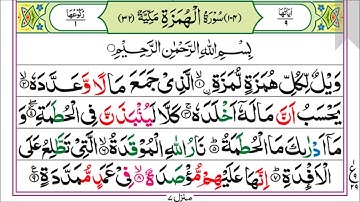 اٰیاتہا ٩ (١٠٤) سُوْرَةُ الْهُمَزَةِ مَكِّيَّةٌ (٣٢) رکوعہا ١
بِسْمِ اللّٰهِ الرَّحْمٰنِ الرَّحِيْمِ
وَيْلٌ لِّكُلِّ هُمَزَةٍ لُّمَزَةِ ۙ﴿١﴾ الَّذِىْ جَمَعَ مَالًا وَّعَدَّدَهٗ ۙ﴿٢﴾
يَحْسَبُ اَنَّ مَالَهٗۤ اَخْلَدَهٗ ۚ﴿٣﴾ كَلَّا لَيُنْۢبَذَنَّ فِى الْحُطَمَةِ ۖ﴿٤﴾ وَ
مَاۤ اَدْرٰىكَ مَا الْحُطَمَةُ ؕ﴿٥﴾ نَارُ اللّٰهِ الْمُوْقَدَةُ ۙ﴿٦﴾ الَّتِىْ تَطَّلِعُ عَلَى
الْاَفْـِٕدَةِ ؕ﴿٧﴾ اِنَّهَا عَلَيْهِمْ مُّؤْصَدَةٌ ۙ﴿٨﴾ فِىْ عَمَدٍ مُّمَدَّدَةٍ ﴿٩﴾
ع ٢٩
منزل ٧